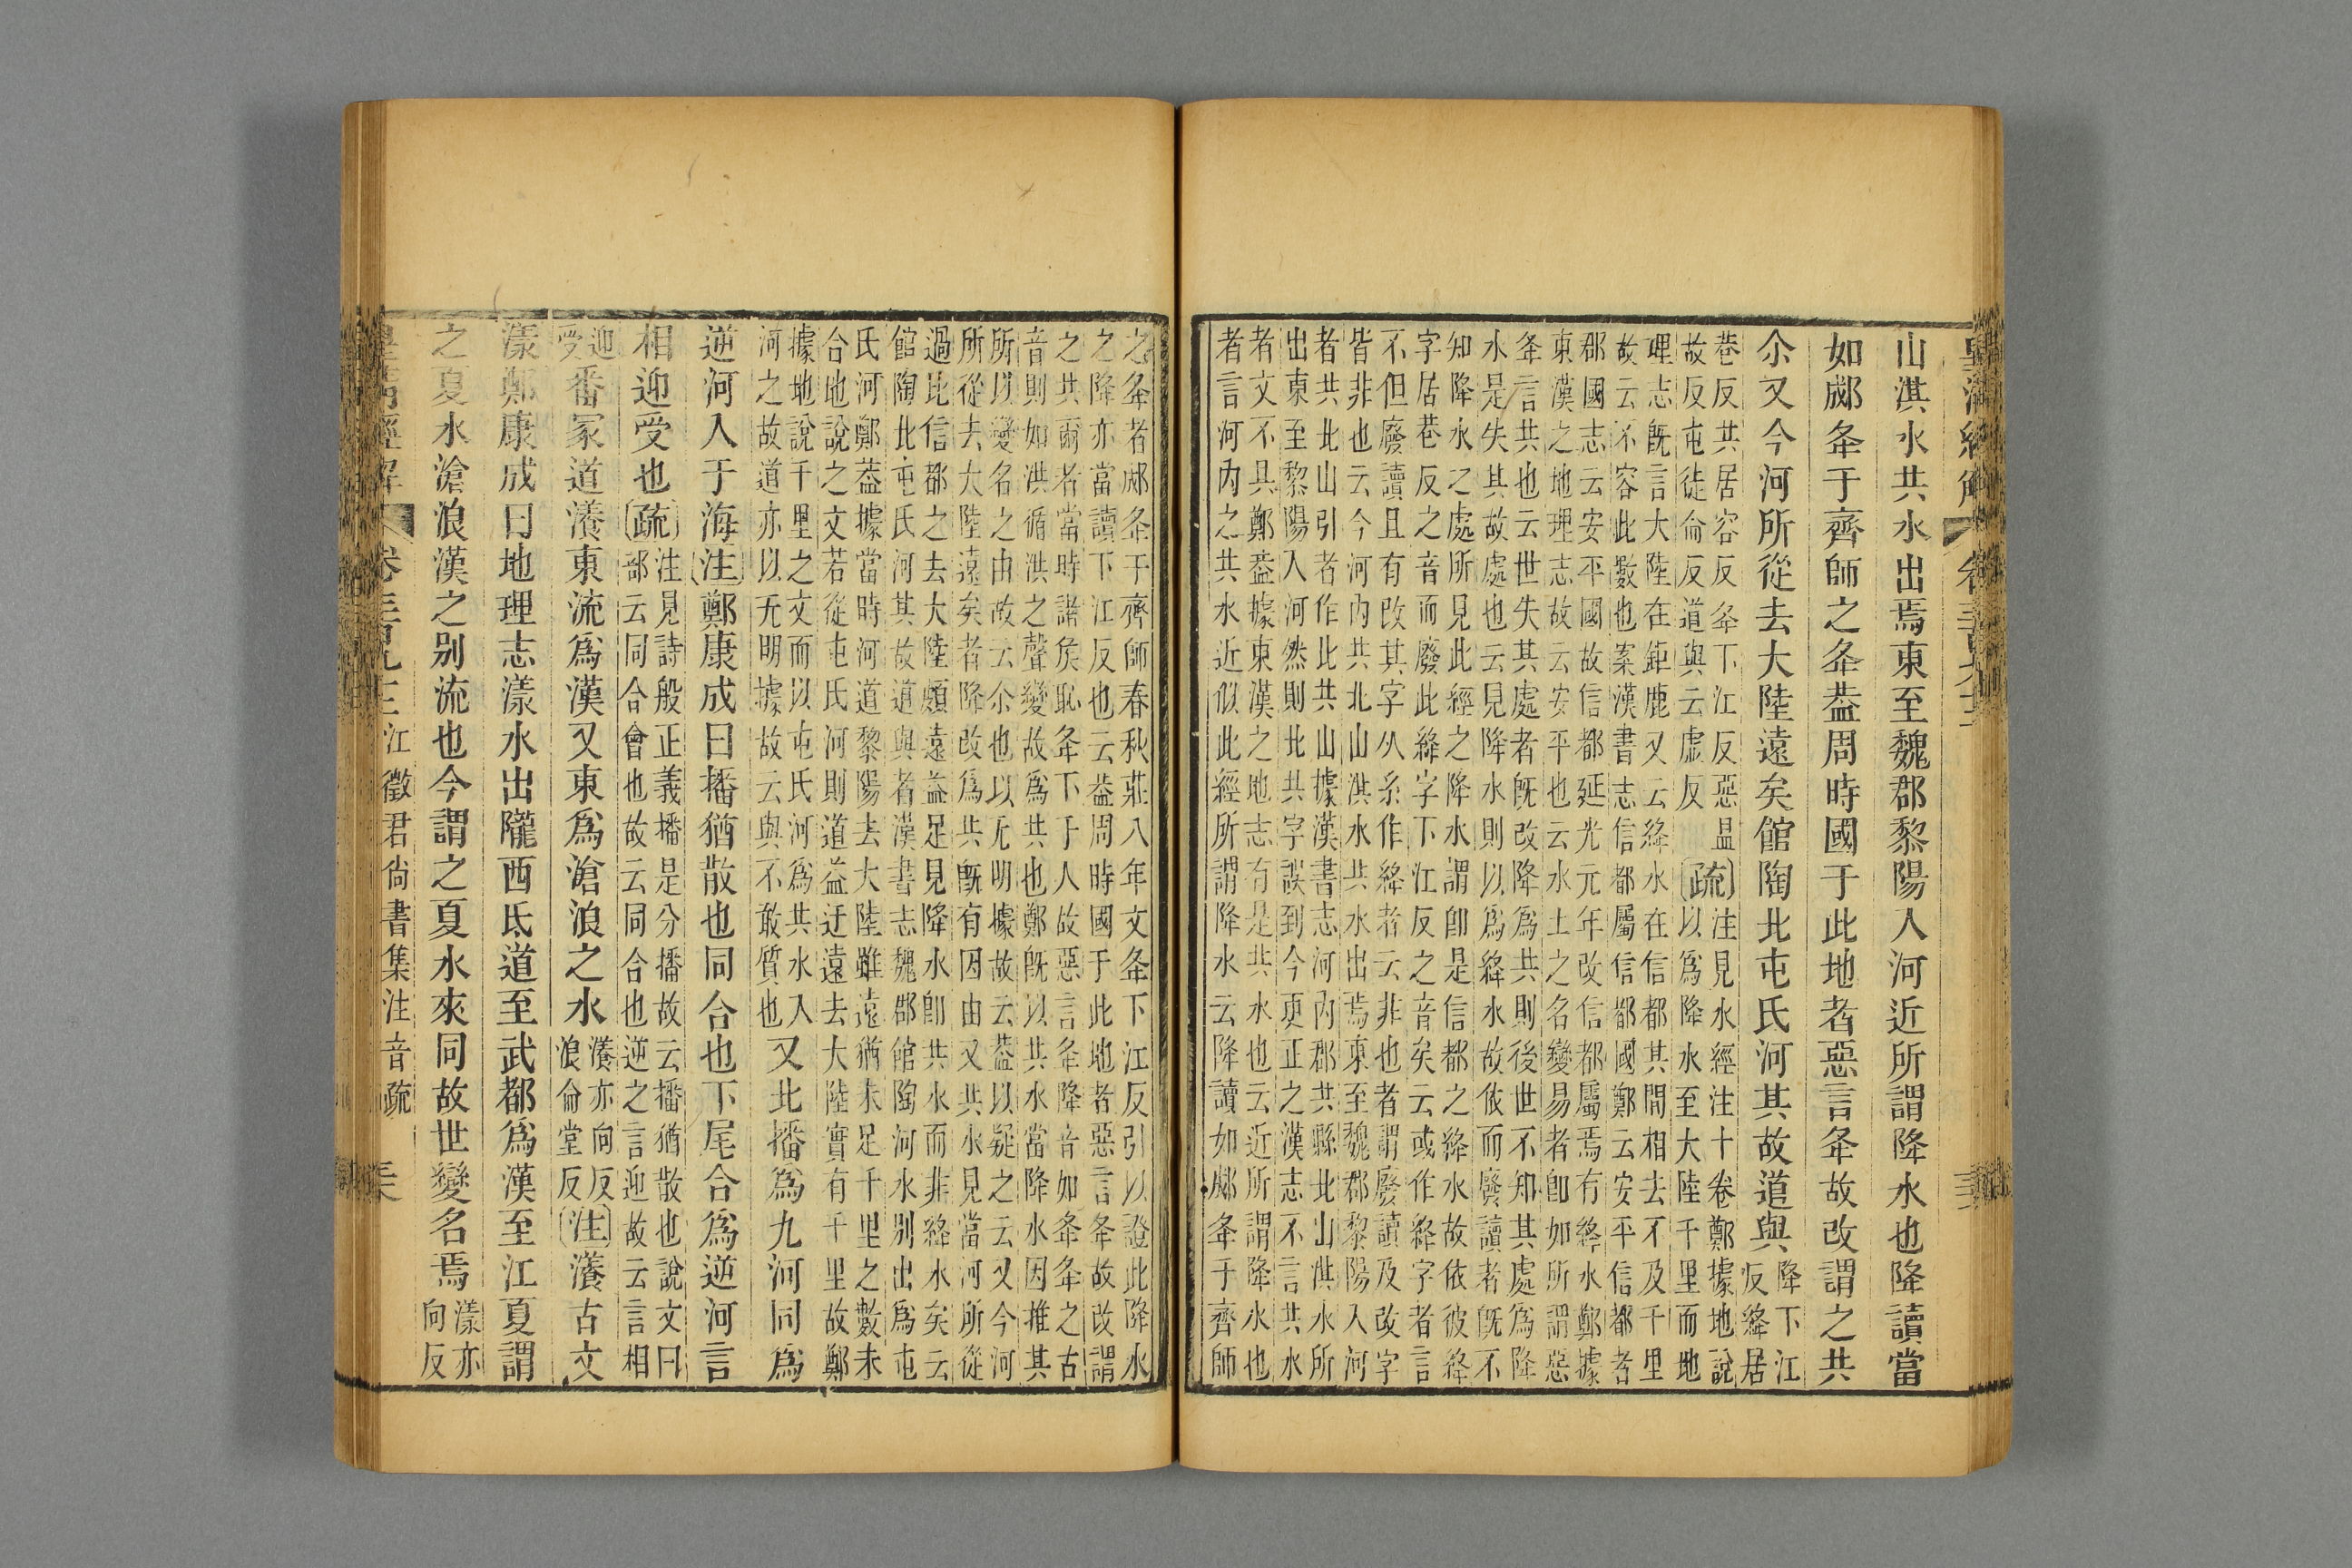 皇清經解
山淇水共水出焉東至魏郡黎陽入河近所謂降水也降讀當
如郕夅于齊師之夅葢周時國于此地者惡言夅故改謂之共
尒又今河所從去大陸遠矣館陶北屯氏河其故道與降下江
反絳居
巷反共居容反夅下江反惡昷
故反屯徒侖反道與云虛反疏注見水經注十卷鄭據地說
以爲降水至大陸千里而地
理志旣言大陸在鉅鹿又云絳水在信都其間相去不及千里
故云不容此數也案漢書志信都屬信都國鄭云安平信都者
郡國志云安平國故信都延光元年改信都屬焉有絳水鄭據
東漢之地理志故云安平也云水土之名變易者卽如所謂惡
夅言共也云世失其處者旣改降爲共則後世不知其處爲降
水是失其故處也云見降水則以爲絳水故依而廢讀者旣不
知降水之處所見此經之降水謂卽是信都之絳水故依彼絳
字居巷反之音而廢此絳字下江反之音矣云或作絳字者言
不但廢讀且有改其字从糸作絳者云非也者謂廢讀及改字
皆非也云今河內共北山淇水共水出焉東至魏郡黎陽入河
者共北山引者作北共山據漢書志河內郡共縣北山淇水所
出東至黎陽入河然則北共字誤到今更正之漢志不言共水
者文不具鄭葢據東漢之地志有是共水也云近所謂降水也
者言河內之共水近似此經所謂降水云降讀如郕夅于齊師
之夅者郕夅于齊師春秋莊八年文夅下江反引以證此降水
之降亦當讀下江反也云葢周時國于此地者惡言夅故改謂
之共爾者當時諸矦恥夅下于人故惡言夅降音如夅夅之古
音則如洪循洪之聲變故爲共也鄭旣以共水當降水因推其
所以變名之由故云尒也以无明據故云葢以疑之云又今河
所從去大陸遠矣者降改爲共旣有因由又共水見當河所從
過比信都之去大陸頗遠益足見降水卽共水而非絳水矣云
館陶北屯氏河其故道與者漢書志魏郡館陶河水別出爲屯
氏河鄭葢據當時河道黎陽去大陸雖遠猶未足千里之數未
合地說之文若從屯氏河則道益迂遠去大陸實有千里故鄭
據地說千里之文而以屯氏河爲共水入
河之故道亦以无明據故云與不敢質也又北播爲九河同爲
逆河入于海注鄭康成曰播猶散也同合也下尾合爲逆河言
相迎受也疏注見詩般正義播是分播故云播猶散也說文曰
部云同合會也故云同合也逆之言迎故云言相
迎
受番冢道瀁東流爲漢又東爲滄浪之水瀁亦向反
浪侖堂反注瀁古文
漾鄭康成曰地理志漾水出隴西氐道至武都爲漢至江夏謂
之夏水滄浪漢之別流也今謂之夏水來同故世變名焉漾亦
向反
江徵君尙書集注音疏